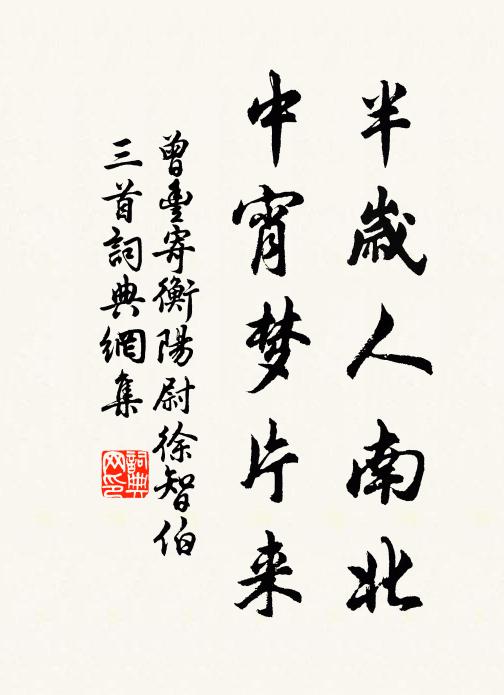 半歲人南北
中宵梦片来
曾豐寄衡陽尉徐智伯
三首詞典網集
詞典网印